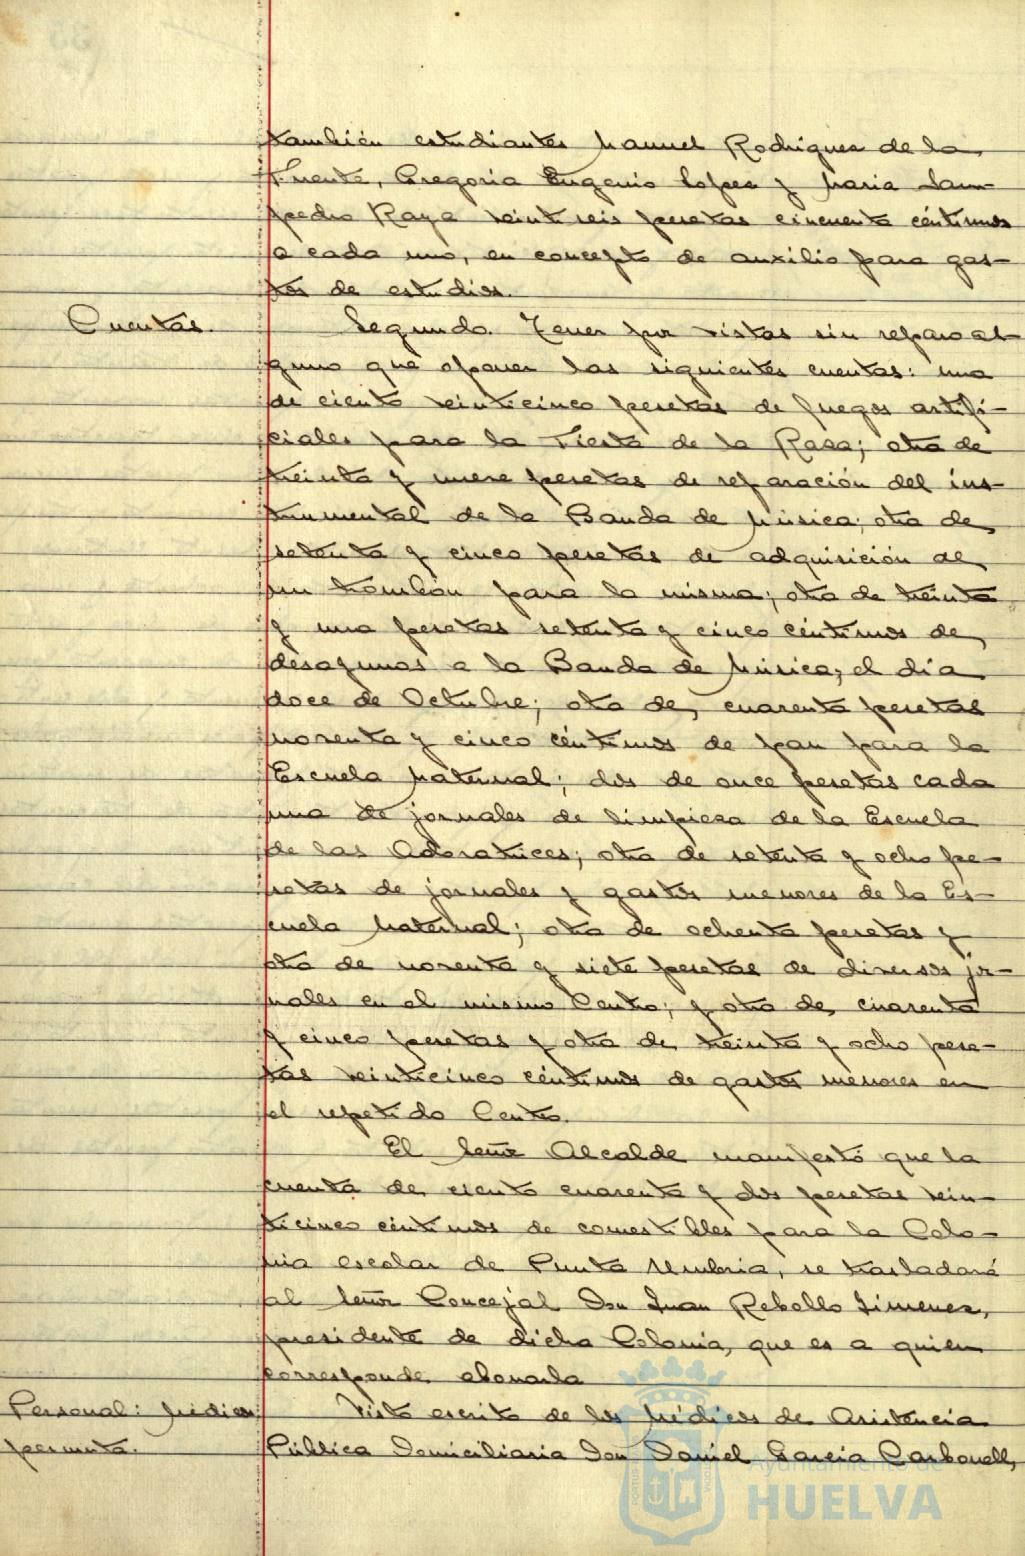 también estudiantes Manuel Rodriguez de la
Fuente, Gregoria Eugenio Lopez y Maria Sam-
pedro Raya veintiseis pesetas cincuenta céntimos
a cada uno, en concepto de auxilio para gas-
tos de estudios.
Cuentas.
Segundo. Tener por vistas sin reparo al-
guno que oponer las siguientes cuentas: una
de ciento veinticinco pesetas de fuegos artifi-
ciales para la Fiesta de la Raza; otra de
treinta y nueve pesetas de reparación del ins-
trumental de la Banda de Música; otra de
setenta y cinco pesetas de adquisición de
un trombón para la misma; otra de treinta
y una pesetas setenta y cinco céntimos de
desayunos a la Banda de Música, el día
doce de Octubre; otra de cuarenta pesetas
noventa y cinco céntimos de pan para la
Escuela Maternal; dos de once pesetas cada
una de jornales de limpieza de la Escuela
de las Adoratrices; otra de setenta y ocho pe-
setas de jornales y gastos menores de la Es-
cuela Maternal; otra de ochenta pesetas y
otra de noventa y siete pesetas de diversos jor-
nales en el mismo Centro; y otra de cuarenta
y cinco pesetas y otra de treinta y ocho pese-
tas veinticinco céntimos de gastos menores en
el repetido Centro.
El Señor Alcalde manifestó que la
cuenta de ciento cuarenta y dos pesetas vein-
ticinco céntimos de comestibles para la Colo-
nia escolar de Punta Umbria, se trasladará
al Señor Concejal Don Juan Rebollo Jimenez,
presidente de dicha Colonia, que es a quien
corresponde abonarla
Personal: Médicos:
permuta.
Visto escrito de los Médicos de Asistencia
Pública Domiciliaria Don Daniel Garcia Carbonell,
Ayuntamiento de
HUELVA